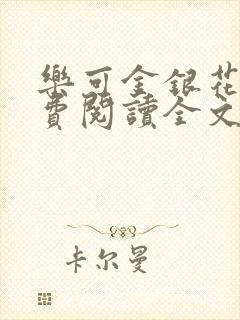 樂可金銀花
費閱讀全文
卡尔曼